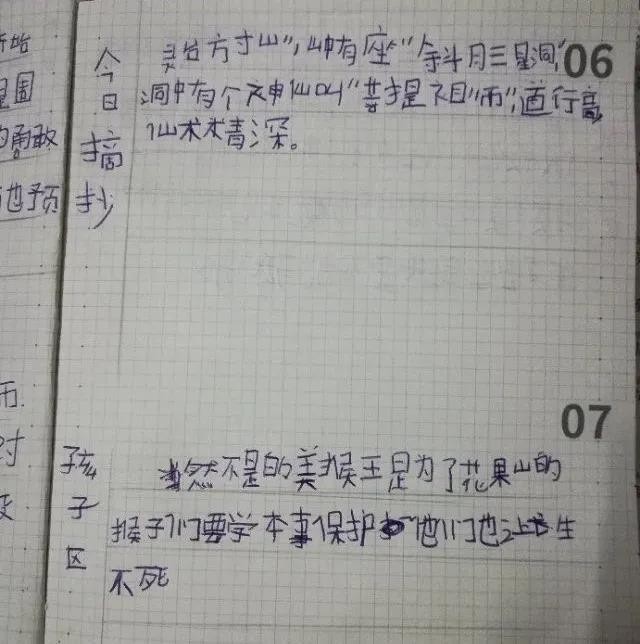 今日摘抄
灵台方寸山",山中有座"斜月三星洞,"
洞中有个神仙叫"菩提祖师",道行高
仙术精深。
06
07
孩子区
当然不是的美猴王是为了花果山的
猴子们要学本事保护他们也让长生
不死
勇敢
也预